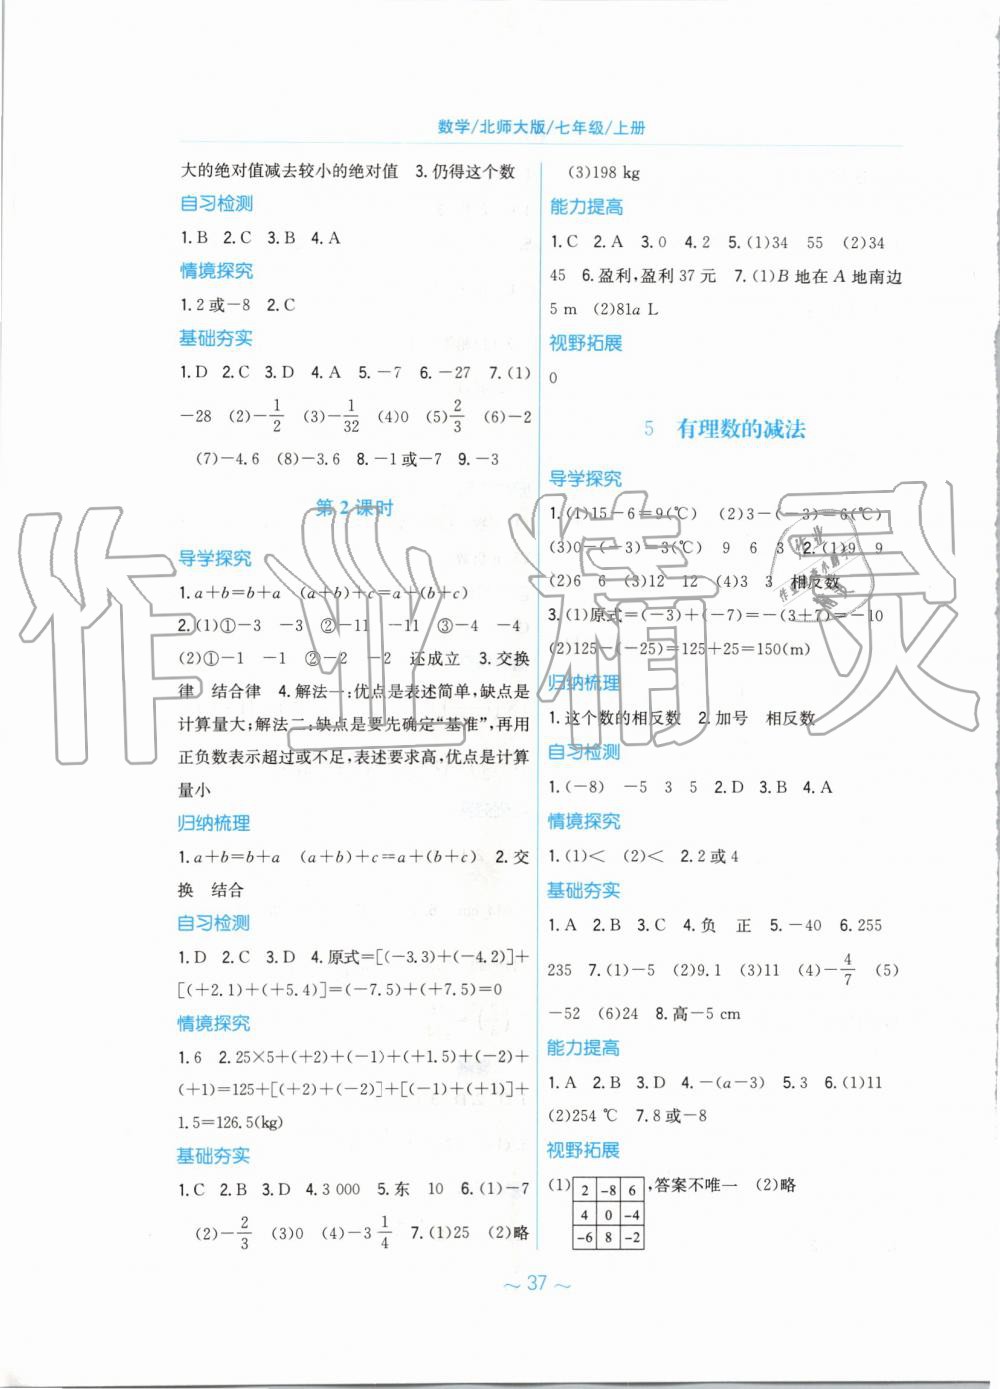 数学/北师大版/七年级/上册
大的绝对值减去较小的绝对值 3. 仍得这个数
自习检测
1. B 2. C 3. B 4. A
情境探究
1. 2 或－8 2. C
基础夯实
1. D 2. C 3. D 4. A 5. －7 6. －27 7. (1)
－28 (2)－1/2 (3)－1/32 (4)0 (5)2/3 (6)－2
(7)－4.6 (8)－3.6 8. －1 或－7 9. －3
第 2 课时
导学探究
1. a＋b＝b＋a (a＋b)＋c＝a＋(b＋c)
2. (1)①－3 －3 ②－11 －11 ③－4 －4
(2)①－1 －1 ②－2 －2 还成立 3. 交换
律 结合律 4. 解法一：优点是表述简单，缺点是
计算量大；解法二：缺点是要先确定“基准”，再用
正负数表示超过或不足，表述要求高，优点是计算
量小
归纳梳理
1. a＋b＝b＋a (a＋b)＋c＝a＋(b＋c) 2. 交
换 结合
自习检测
1. D 2. C 3. D 4. 原式＝[(－3.3)＋(－4.2)]＋
[(＋2.1)＋(＋5.4)]＝(－7.5)＋(＋7.5)＝0
情境探究
1. 6 2. 25×5＋(＋2)＋(－1)＋(＋1.5)＋(－2)＋
(＋1)＝125＋[(＋2)＋(－2)]＋[(－1)＋(＋1)]＋
1.5＝126.5(kg)
基础夯实
1. C 2. B 3. D 4. 3 000 5. 东 10 6. (1)－7
(2)－2/3 (3)0 (4)－3 1/4 7. (1)25 (2)略
(3)198 kg
能力提高
1. C 2. A 3. 0 4. 2 5. (1)34 55 (2)34
45 6. 盈利，盈利 37 元 7. (1)B 地在 A 地南边
5 m (2)81a L
视野拓展
0
5 有理数的减法
导学探究
1. (1)15－6＝9(℃) (2)3－(－3)＝6(℃)
(3)0－(－3)＝3(℃) 9 6 3 2. (1)9 9
(2)6 6 (3)12 12 (4)3 3 相反数
3. (1)原式＝(－3)＋(－7)＝－(3＋7)＝－10
(2)125－(－25)＝125＋25＝150(m)
归纳梳理
1. 这个数的相反数 2. 加号 相反数
自习检测
1. (－8) －5 3 5 2. D 3. B 4. A
情境探究
1. (1)＜ (2)＜ 2. 2 或 4
基础夯实
1. A 2. B 3. C 4. 负 正 5. －40 6. 255
235 7. (1)－5 (2)9.1 (3)11 (4)－4/7 (5)
－52 (6)24 8. 高－5 cm
能力提高
1. A 2. B 3. D 4. －(a－3) 5. 3 6. (1)11
(2)254 ℃ 7. 8 或－8
视野拓展
(1) 2 －8 6 ，答案不唯一 (2)略
4 0 －4
－6 8 －2
～ 37 ～
作业精灵